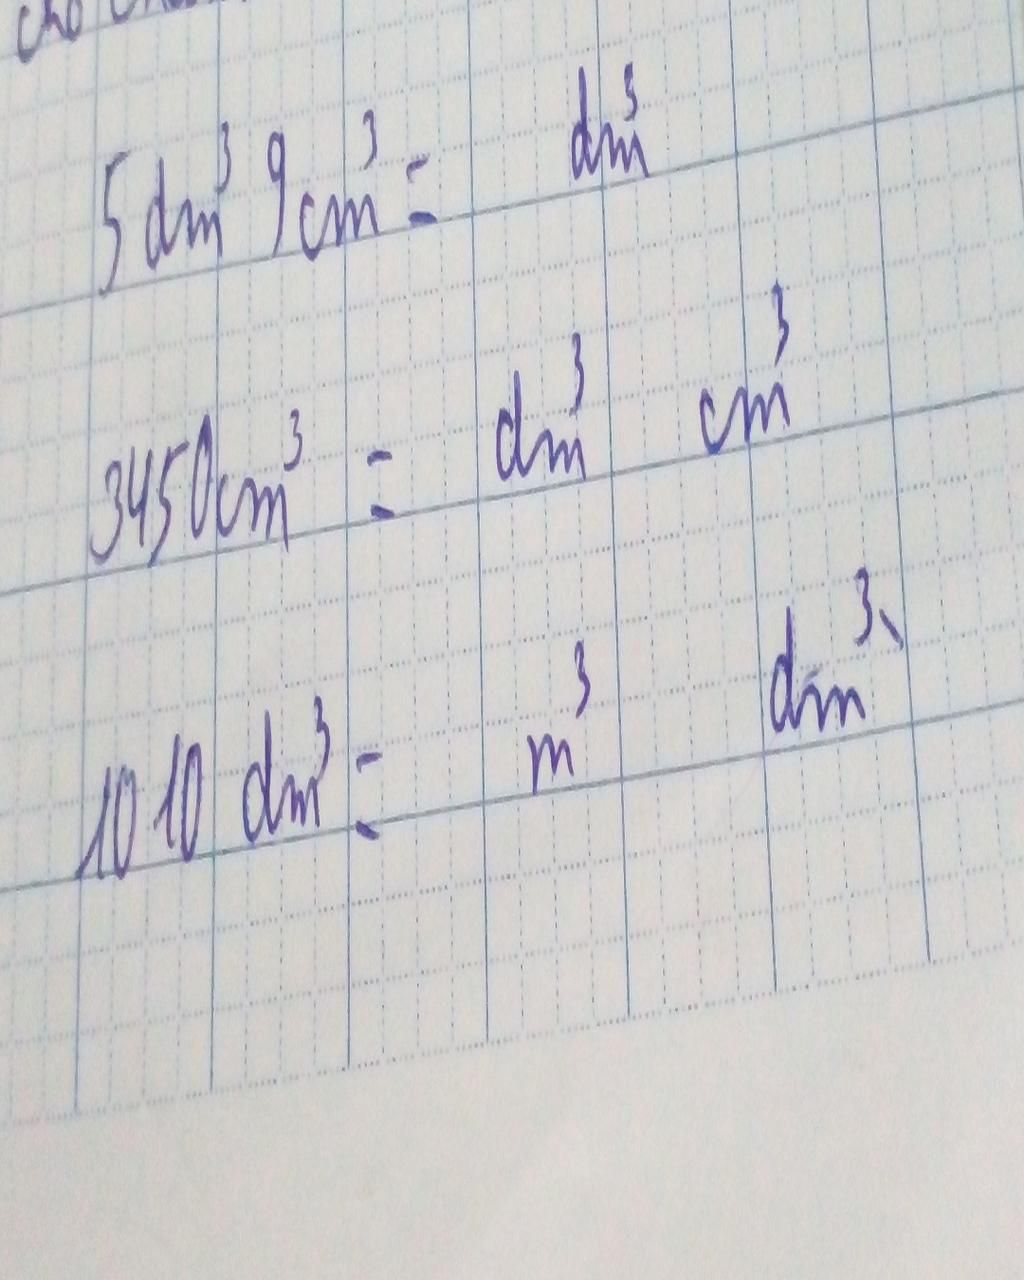 cho
5 dm³ 9 cm³ = dm³
3450 cm³ = dm³ cm³
1010 dm³ = m³ dm³